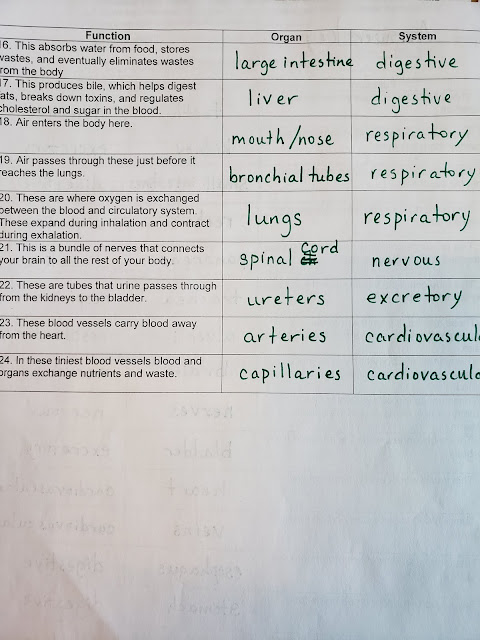 Function Organ System
6. This absorbs water from food, stores
wastes, and eventually eliminates wastes
from the body
large intestine digestive
17. This produces bile, which helps digest
fats, breaks down toxins, and regulates
cholesterol and sugar in the blood.
liver digestive
18. Air enters the body here.
mouth/nose respiratory
19. Air passes through these just before it
reaches the lungs.
bronchial tubes respiratory
20. These are where oxygen is exchanged
between the blood and circulatory system.
These expand during inhalation and contract
during exhalation.
lungs respiratory
21. This is a bundle of nerves that connects
your brain to all the rest of your body.
spinal cord nervous
22. These are tubes that urine passes through
from the kidneys to the bladder.
ureters excretory
23. These blood vessels carry blood away
from the heart.
arteries cardiovascul
24. In these tiniest blood vessels blood and
organs exchange nutrients and waste.
capillaries cardiovascula